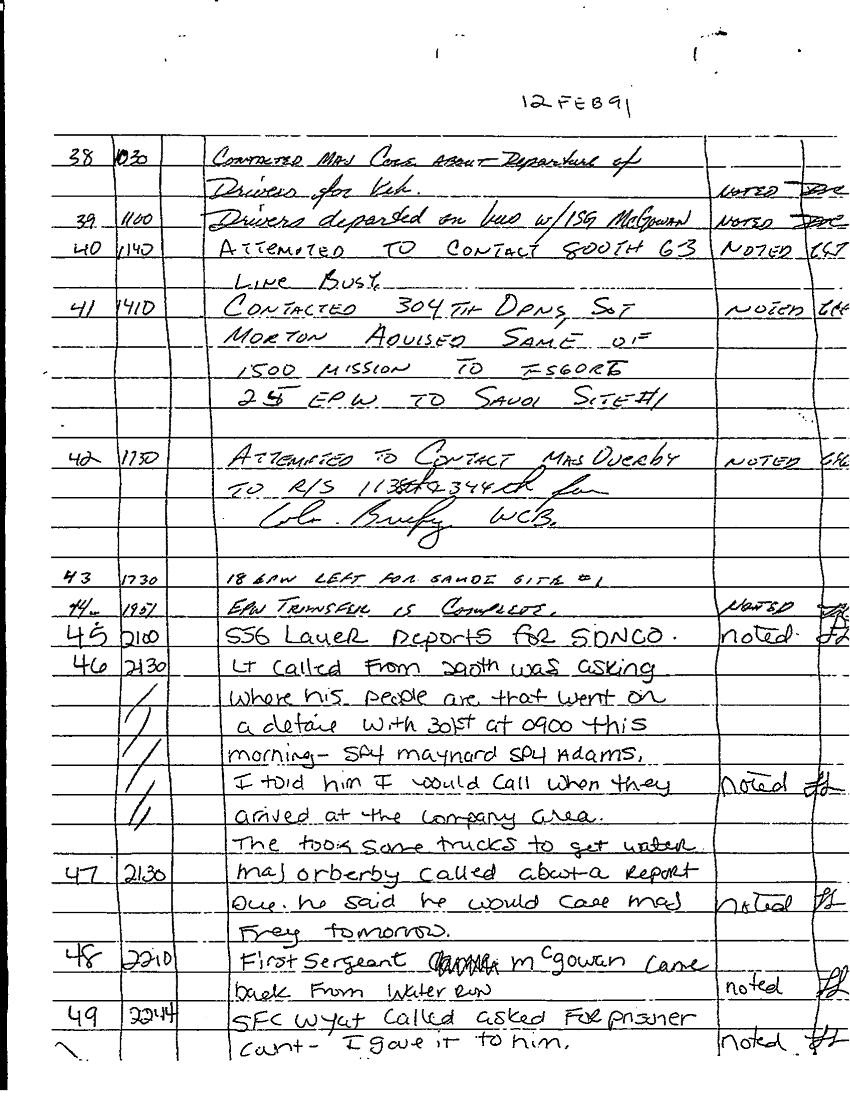 12 FEB 91
38 1030 CONTACTED MAJ ABOUT Departure of
Drivers for Veh. NOTED
39 1100 Drivers departed on bus w/1SG McGOWAN NOTED
40 1140 ATTEMPTED TO CONTACT 800TH G3 NOTED
LINE BUSY.
41 1410 CONTACTED 304TH DPNS, SGT NOTED
MORTON ADVISED SAME OF
1500 MISSION TO ESCORT
25 EPW TO SAUDI SITE #1
42 1730 ATTEMPTED TO CONTACT MAJ OVERBY NOTED
TO R/S 113th & 344th for
WCB.
43 1730 18 EPW LEFT FOR SAUDI SITE #1
44 1951 EPW TRANSFER IS COMPLETE. NOTED
45 2100 SSG Lauer Reports for SDNCO. noted.
46 2130 LT called From 290th was asking
where his people are that went on
a detaile with 301st at 0900 this
morning- SP4 maynard SP4 Adams.
I told him I would call when they noted
arrived at the company area.
The took some trucks to get water
47 2130 maj orberby called about a Report
Due. he said he would Case maj noted
Frey tomorrow.
48 2210 First Sergeant mcgowan came
back From Water Run noted
49 2244 SFC wyat called asked For prisner
cunt- I gave it to him. noted